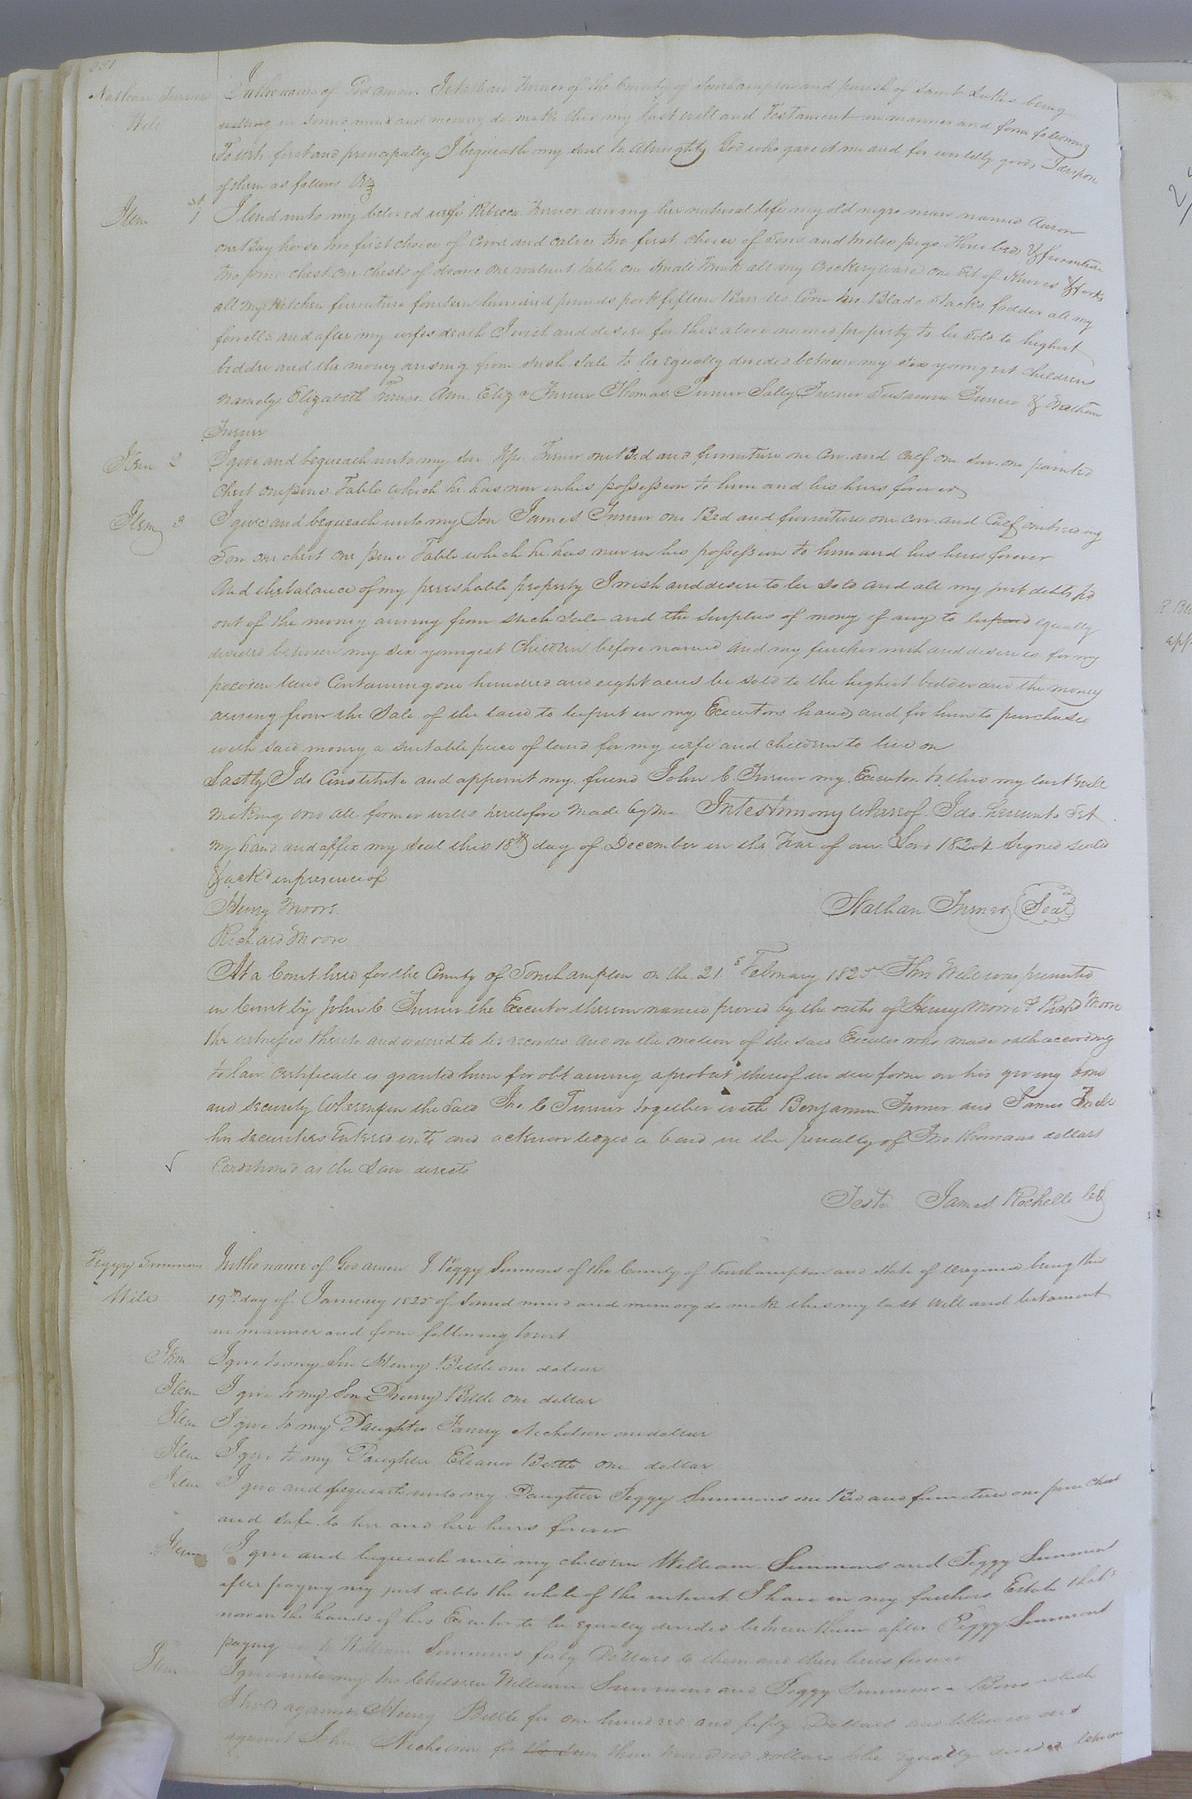 331
Nathan Turner
Will
In the name of God amen I Nathan Turner of the County of Southampton and parish of Saint Lukes being
in sound mind and memory do make this my last will and Testament in manner and form following
To wit, first and principally I bequeath my soul to Almighty God who gave it me and for worldly goods I dispose
of them as follows Viz
Item 1st I lend unto my beloved wife Rebecca Turner during her natural life my old negro man named Aaron
one Bay horse two first choice of Cows and calves two first choice of Sows and pigs three beds & furniture
two pine chest one chest of draws one walnut table one small trunk all my crockeryware one set of knives & forks
all my kitchen furniture fourteen hundred pounds pork fifteen Barrels Corn two Blade stacks fodder all my
fowells and after my wifes death I wish and desire for the above named property to be sold to highest
bidder and the money arising from such sale to be equally divided between my six youngest children
namely Elizabeth Turner Ann Eliza Turner Thomas Turner Sally Turner Susanna Turner & Nathan
Turner
Item 2 I give and bequeath unto my son Turner one Bed and furniture one Cow and Calf one Sow one painted
Chest one pine Table which he has now in his possession to him and his heirs forever
Item 3 I give and bequeath unto my Son James Turner one Bed and furniture one cow and Calf
Sow one chest one pine Table which he has now in his possession to him and his heirs forever
And the balance of my perishable property I wish and desire to be sold and all my just debts pd
out of the money arising from such Sale and the Surplus of money if any to be equally
divided between my six youngest Children before named and my further wish and desire is for my
land Containing one hundred and eight acres be sold to the highest bidder and the money
arising from the Sale of the land to be put in my Executors hand and for him to purchase
with said money a suitable piece of land for my wife and children to live on
Lastly I do Constitute and appoint my friend John C Turner my Executor to this my last will
all former wills heretofore made by me In testimony whereof I do hereunto Set
my hand and affix my Seal this 18th day of December in the Year of our Lord 1824 Signed Seald
& ackd in presence of
Henry Moore
Nathan Turner (Seal)
Richard Moore
At a Court held for the County of Southampton on the 21st February 1825 This Will was presented
in Court by John C Turner the Executor therein named proved by the oaths of Henry Moore & Richd Moore
the witnesses thereto and ordered to be recorded and on the motion of the said Executor who made oath according
to law certificate is granted him for obtaining a probat thereof in due form on his giving bond
and security Whereupon the said Jno C Turner together with Benjamin Turner and James
his securities Entered into and acknowledged a bond in the penalty of Two thousand dollars
Conditioned as the Law directs
Teste James Rochelle CC
Peggy Simmons
Will
In the name of God amen I Peggy Simmons of the County of Southampton and State of Virginia being this
19th day of January 1825 of Sound mind and memory do make this my last will and testament
in manner and form following towit
Item I give to my Son Henry Bittle one dollar
Item I give to my Son Drewry Bittle one dollar
Item I give to my Daughter Fanny Nicholson one dollar
Item I give to my Daughter Eleanor Bittle one dollar
Item I give and bequeath unto my Daughter Peggy Simmons one Bed and furniture one pine Chest
and Safe to her and her heirs forever
Item I give and bequeath unto my children William Simmons and Peggy Simmons
after paying my just debts the whole of the interest I have in my fathers Estate that's
now in the hands of his Executor to be equally divided between them after Peggy Simmons
paying to William Simmons forty Dollars to them and their heirs forever
Item I give unto my two Children William Simmons and Peggy Simmons a Bond which
I hold against Henry Bittle for one hundred and fifty Dollars and
against John Nicholson for three hundred dollars to be equally divided between